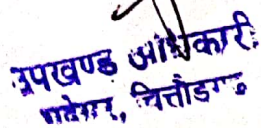 उपखण्ड अधिकारी
चित्तौडगढ